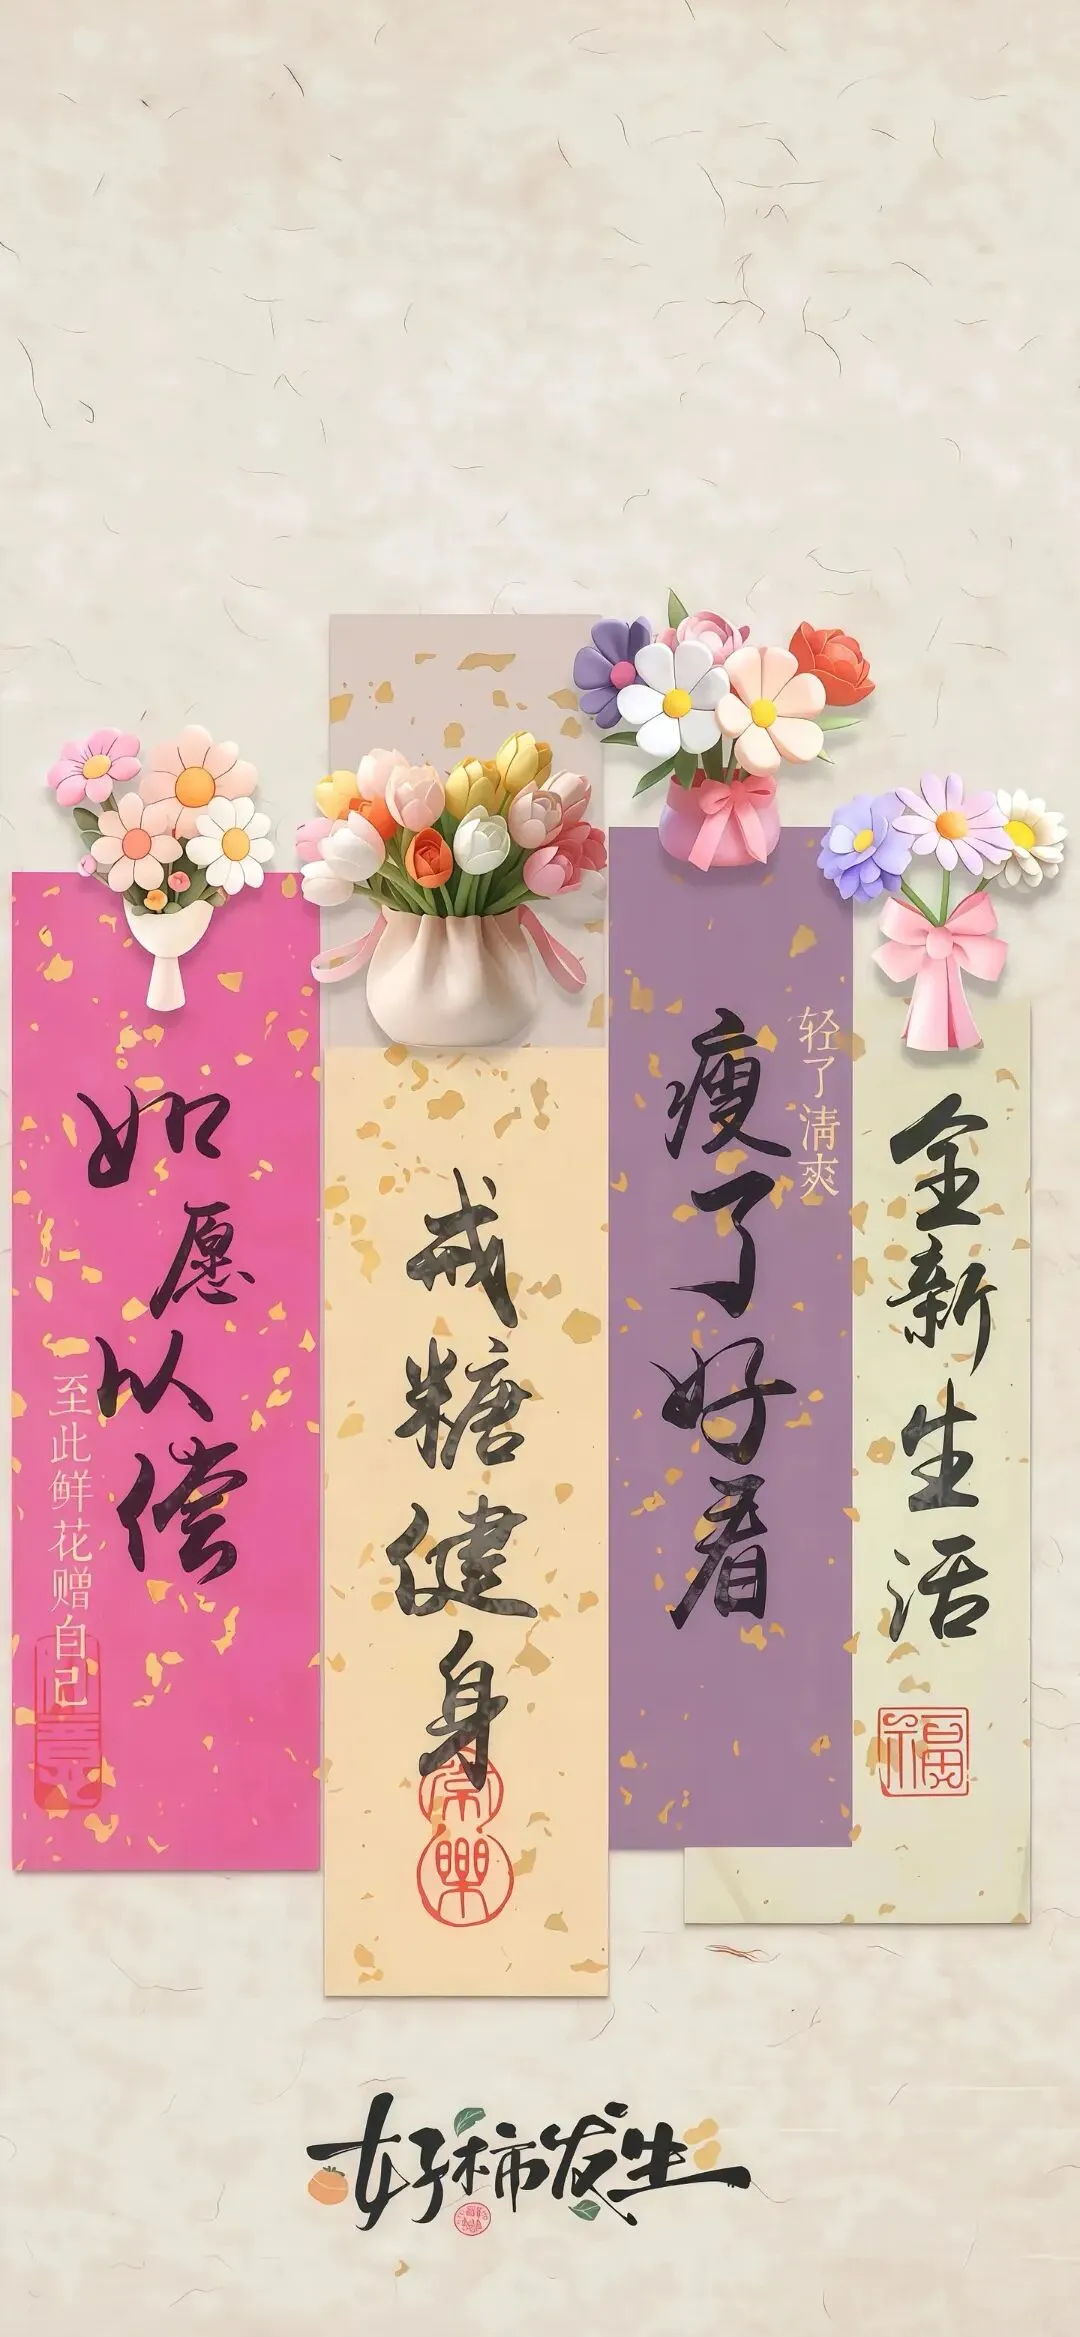 如愿以偿
至此鲜花赠自己
戒糖健身
瘦了好看
轻了清爽
全新生活
福
好柿发生